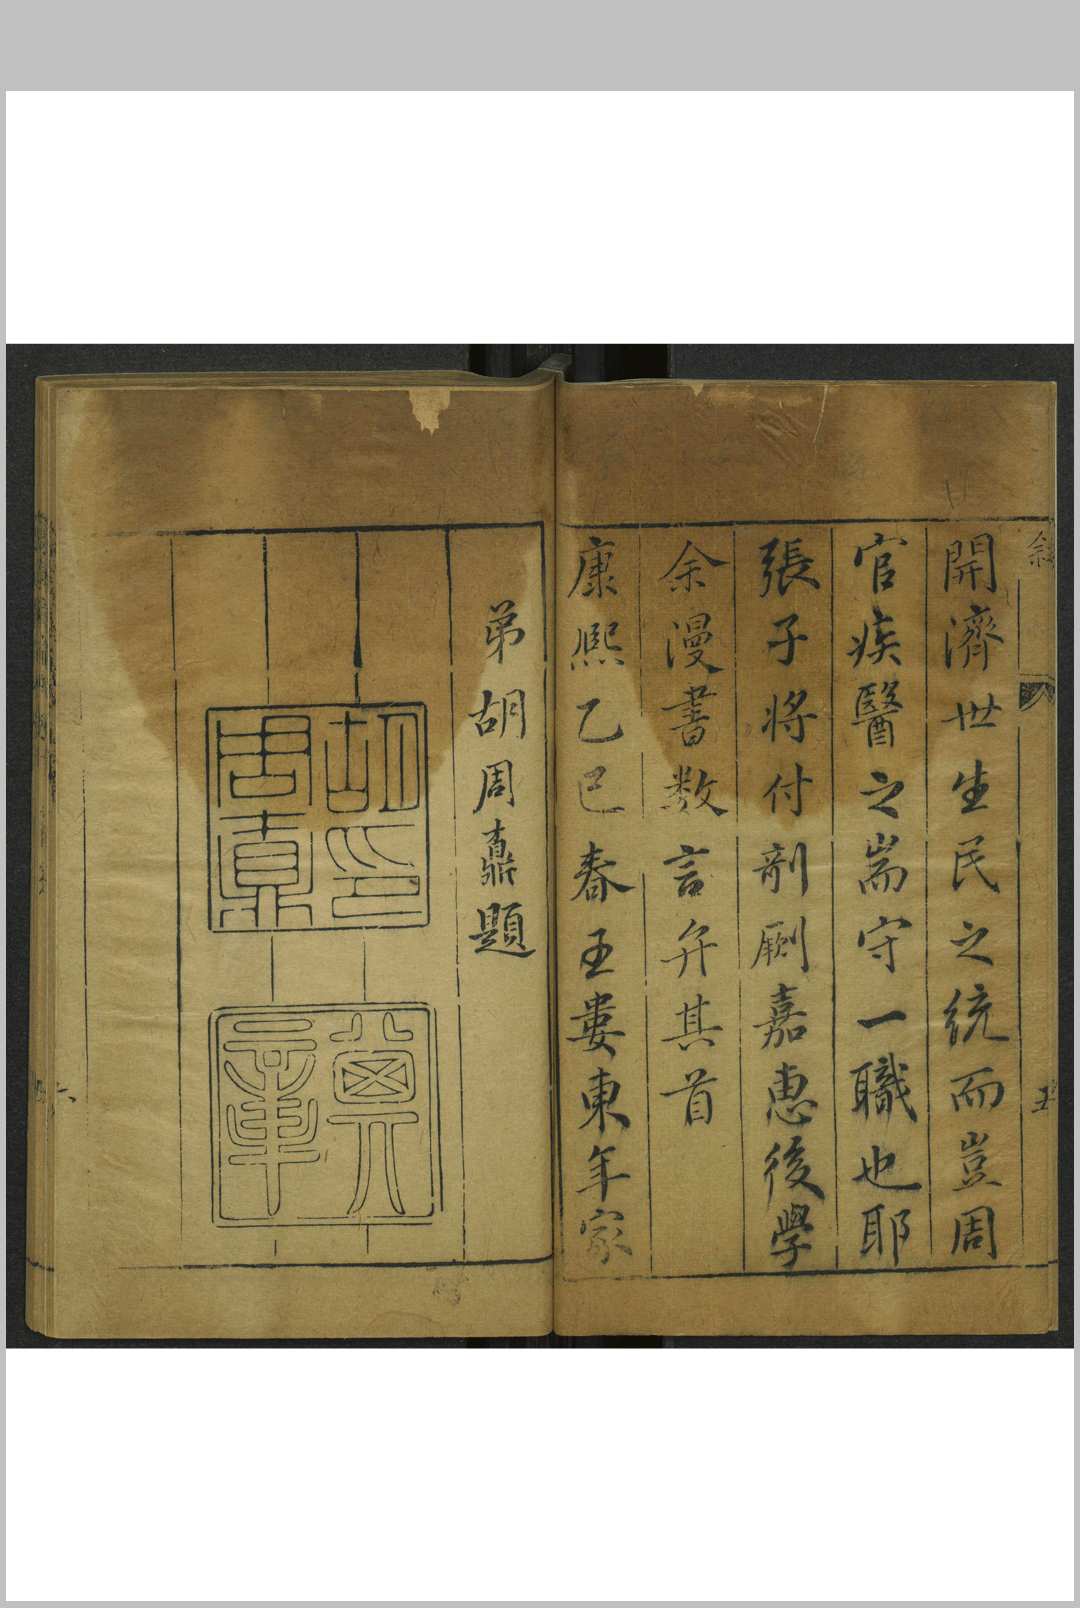 敘
五
開濟世生民之統而豈周
官疾醫之耑守一職也耶
張子將付剞劂嘉惠後學
余漫書数言弁其首
康熙乙巳春王婁東年家
弟胡周鼒題
胡印
周鼒
六